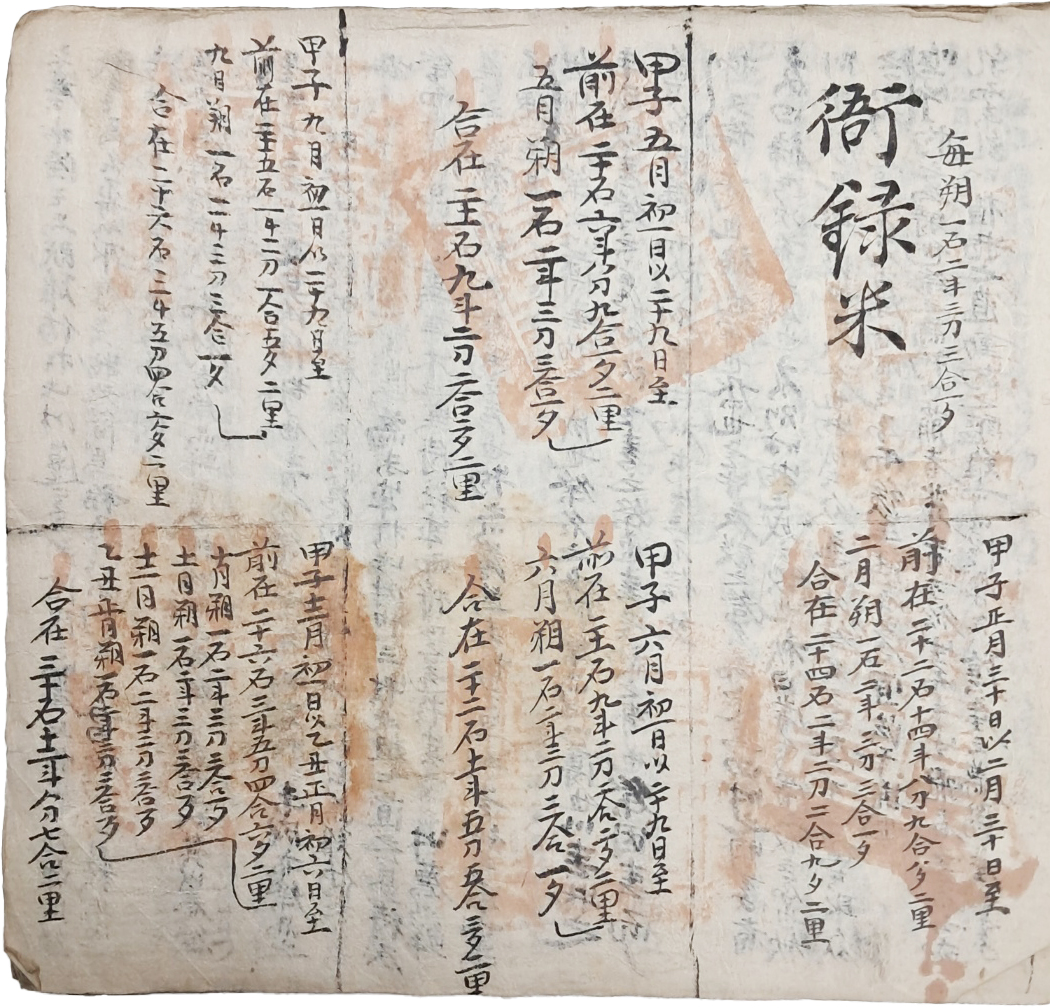 每朔一石二斗三刀三合一夕
衙録米
甲子正月三十日以二月三十日至
前在二十二石十四斗八刀九合八夕二里
二月朔一石二斗三刀三合一夕
合在二十四石二斗二刀二合九夕二里
甲子五月初一日以二十九日至
前在二十石六斗八刀九合一夕二里
五月朔一石二斗三刀三合一夕
合在二十一石九斗二刀二合二夕二里
甲子六月初一日以二十九日至
前在二十一石九斗二刀二合二夕二里
六月朔一石二斗三刀三合一夕
合在二十二石十一斗五刀五合三夕二里
甲子九月初一日以二十九日至
前在二十五石一斗二刀一合五夕二里
九月朔一石二斗三刀三合一夕
合在二十六石三斗五刀四合六夕二里
甲子十二月初一日以乙丑正月初六日至
前在二十六石三斗五刀四合六夕二里
十月朔一石二斗三刀三合一夕
十一月朔一石二斗三刀三合一夕
十二月朔一石二斗三刀三合一夕
乙丑正月朔一石二斗三刀三合一夕
合在三十石十二斗八刀七合二里